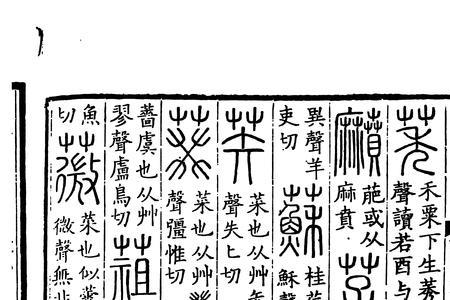 莠禾粟下生莠
聲讀若酉
萉或从
麻賁
芓
異聲羊
吏切
蘇桂荏
穌聲
菜也从艸矢
聲失匕切
葵菜也从艸癸
聲彊惟切
薔虞也从艸
翏聲盧鳥切
魚
切
薇菜也似藿
微聲無非